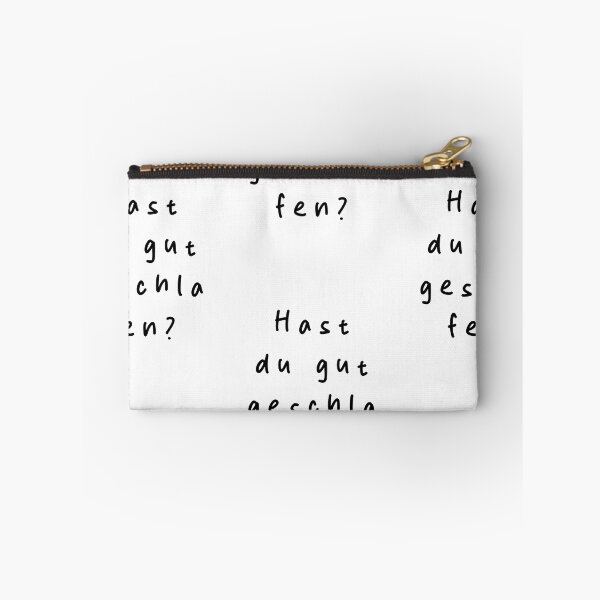 ast
gut
chla
en?
fen?
Hast
du gut
geschla
Ha
du
ges
fe